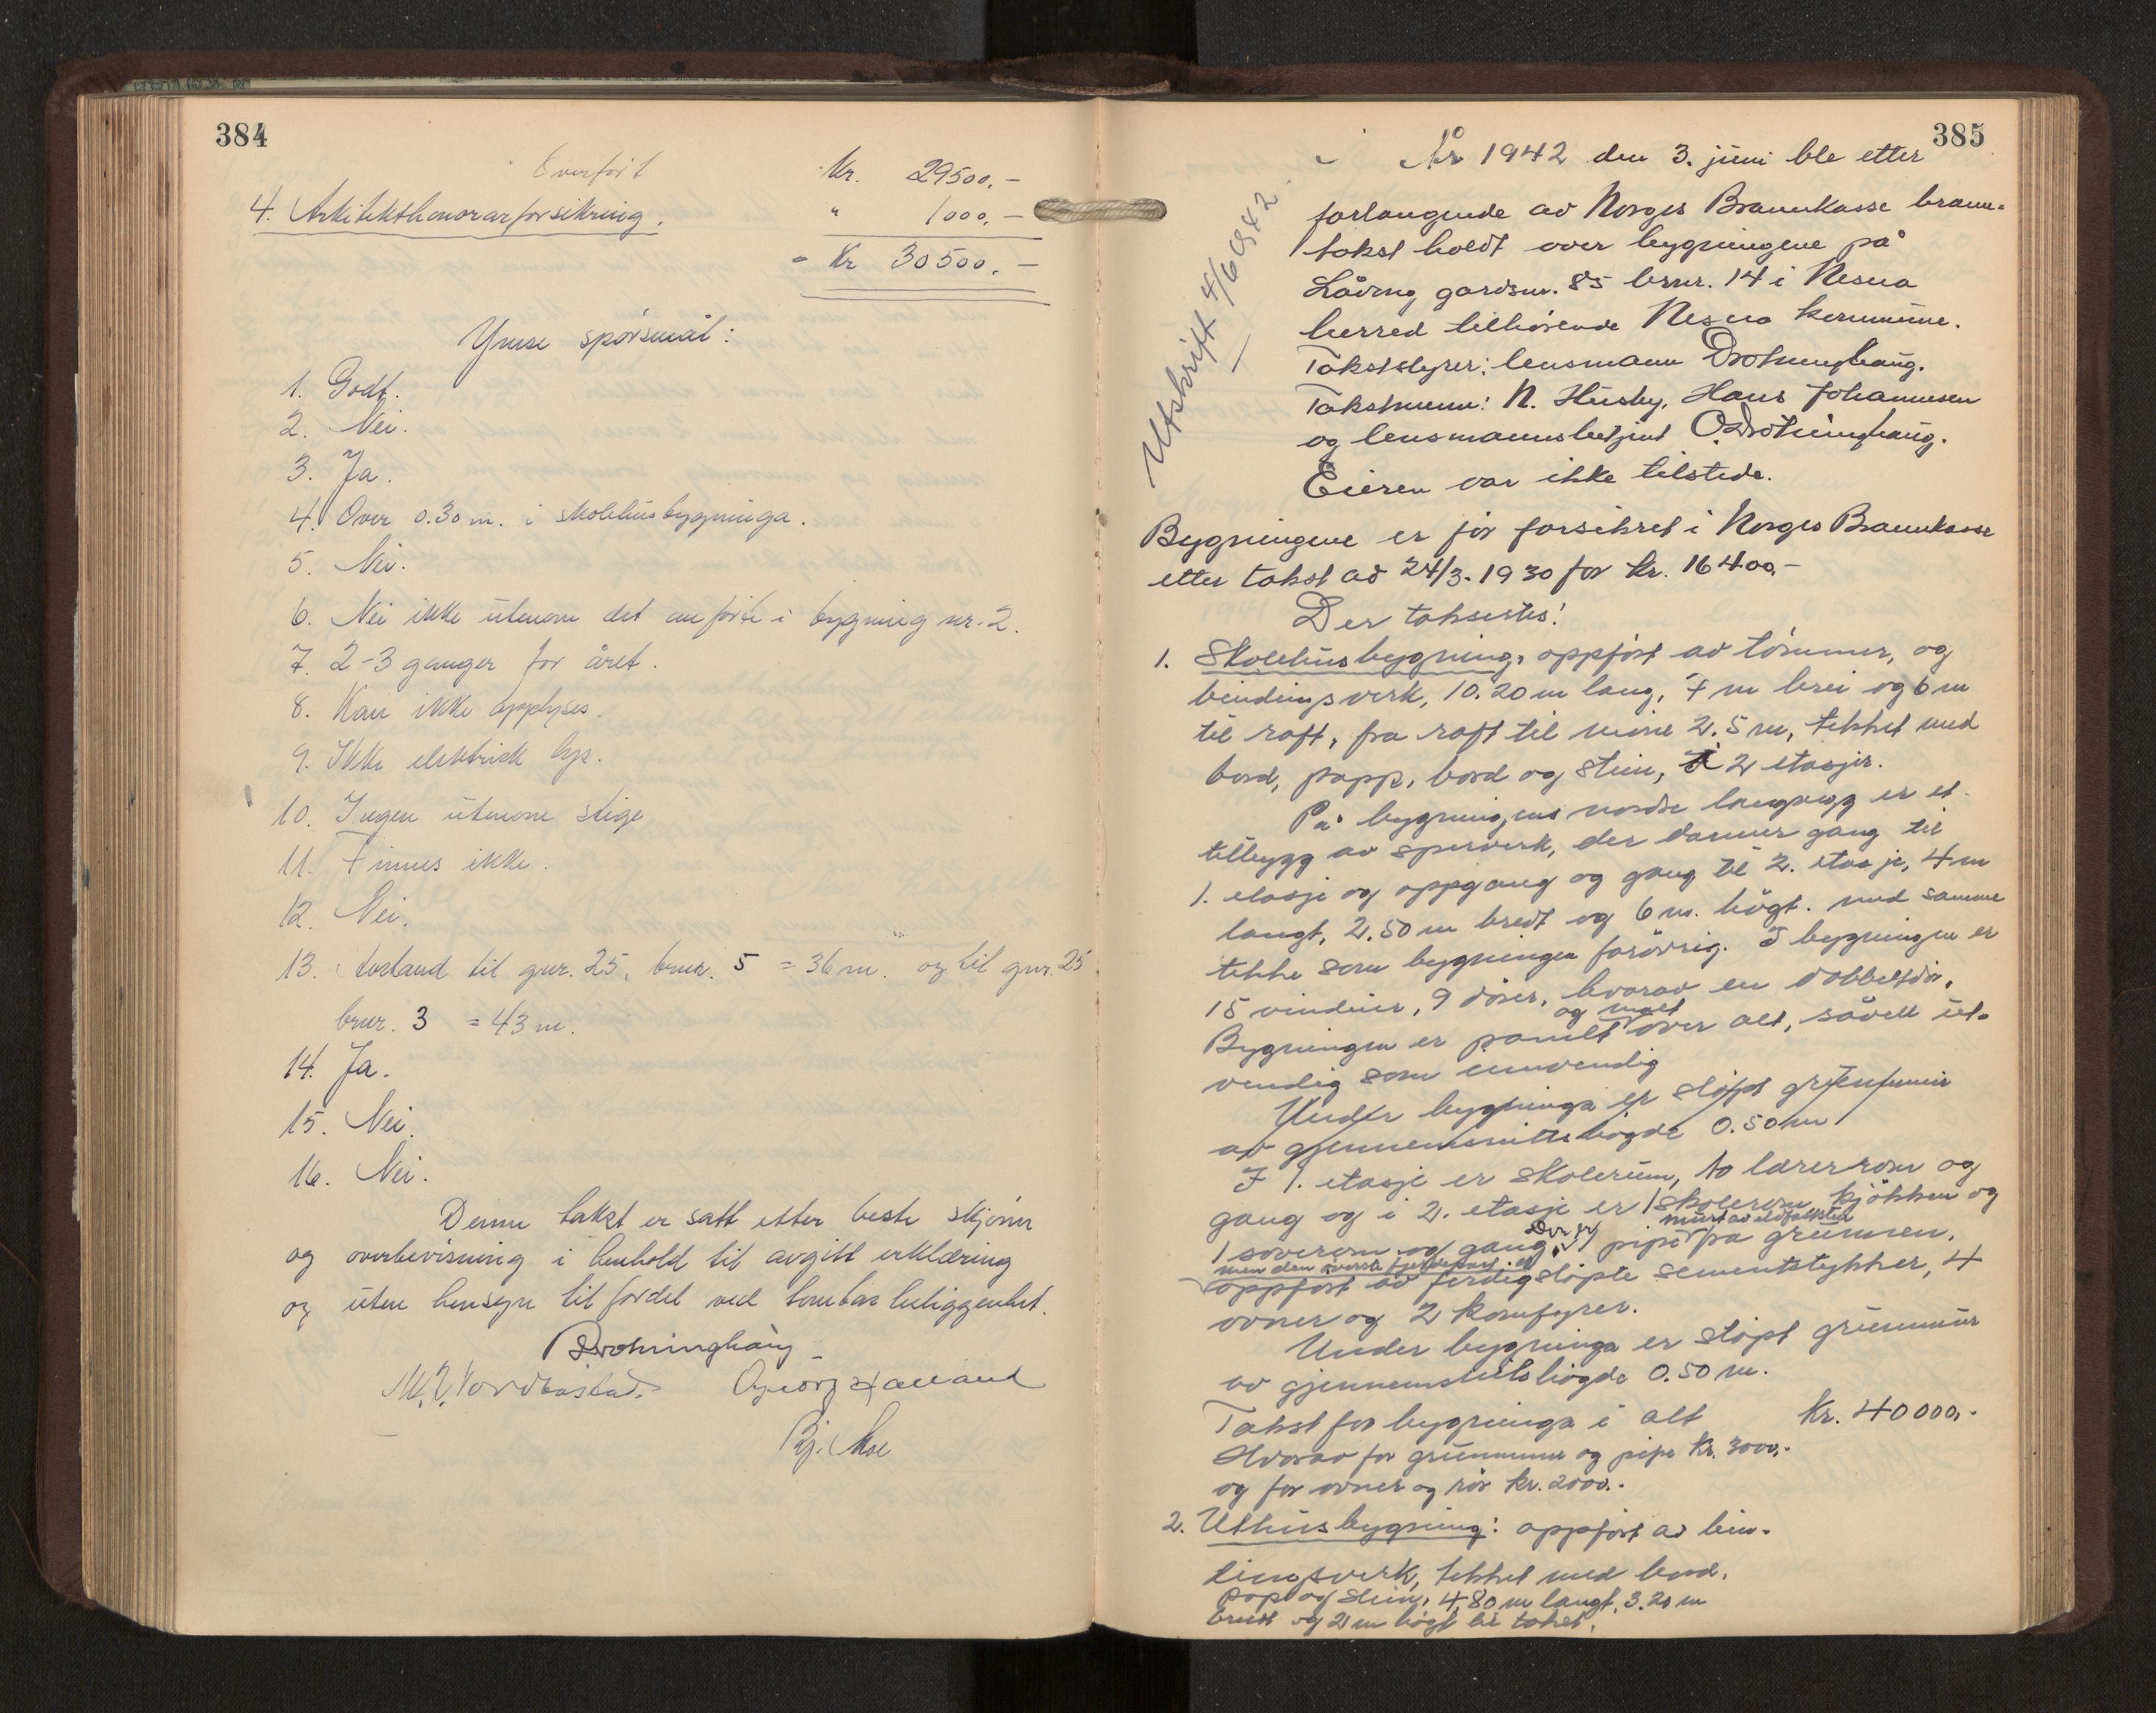 384
Overført Kr. 29500.-
4. Arkitekthonorarforsikring. " 1000.-
= Kr 30500.-
Ymse spørsmål:
1. Godt.
2. Nei.
3. Ja.
4. Over 0.30 m. i skolehusbygninga.
5. Nei.
6. Nei ikke utenom det anførte i bygning nr. 2.
7. 2-3 ganger for året.
8. Kan ikke opplyses.
9. Ikke elektrisk lys.
10. Ingen utenom stige
11. Finnes ikke.
12. Nei.
13. Avstand til gnr. 25, brnr. 5 = 36 m. og til gnr. 25
brnr. 3 = 43 m.
14. Ja.
15. Nei.
16. Nei.
Denne takst er satt etter beste skjønn
og overbevisning i henhold til avgitt erklæring
og uten hensyn til fordel ved tomtas beliggenhet.
Drotninghaug
385
Utskrift 4/6 1942
År 1942 den 3. juni ble etter
forlangende av Norges Brannkasse brann-
takst holdt over bygningene på
Låving gardsnr. 85 brnr. 14 i Nesna
herred tilhørende Nesna kommune.
Takststyrer: lensmann Drotninghaug.
Takstmenn: N. Husby, Hans Johannesen
og lensmannsbetjent O. Drotninghaug.
Eieren var ikke tilstede.
Bygningene er før forsikret i Norges Brannkasse
etter takst av 24/3. 1930 for kr. 16400.-
Der taksertes:
1. Skolehusbygning, oppført av tømmer, og
bindingsverk, 10.20 m lang, 7 m brei og 6 m
til raft, fra raft til møne 2.5 m, tekket med
bord, papp, bord og stein, 2 etasjer.
På bygningens nordre langvegg er et
tilbygg av sperverk, der danner gang til
1. etasje og oppgang og gang til 2. etasje, 4 m
langt, 2.50 m bredt og 6 m. høgt. med samme
tekke som bygningen forøvrig. I bygningen er
15 vinduer, 9 dører, hvorav en dobbeltdør.
og malt
Bygningen er panelt over alt, såvel ut-
vendig som innvendig
Under bygninga er støpt grunnmur
av gjennemsnittshøgde 0.50 m
I 1. etasje er skolerum, to lærerrom og
gang og i 2. etasje er 1 skolerom, kjøkken og
murt av ildfaststein
1 soverom og gang. Der er 1 pipe på grunnen,
men den øverste fjerdepart er
oppført av ferdigstøpte sementstykker, 4
ovner og 2 komfyrer.
Under bygninga er støpt grunnmur
av gjennemsnittshøgde 0.50 m.
Takst for bygninga i alt kr. 40000.-
Hvorav for grunnmur og pipe kr. 3000.-
og for ovner og rør kr. 2000.-
2. Uthusbygning: oppført av bin-
dingsverk, tekket med bord,
papp og stein, 4.80 m langt, 3.20 m
bredt og 2 m høgt til taket.